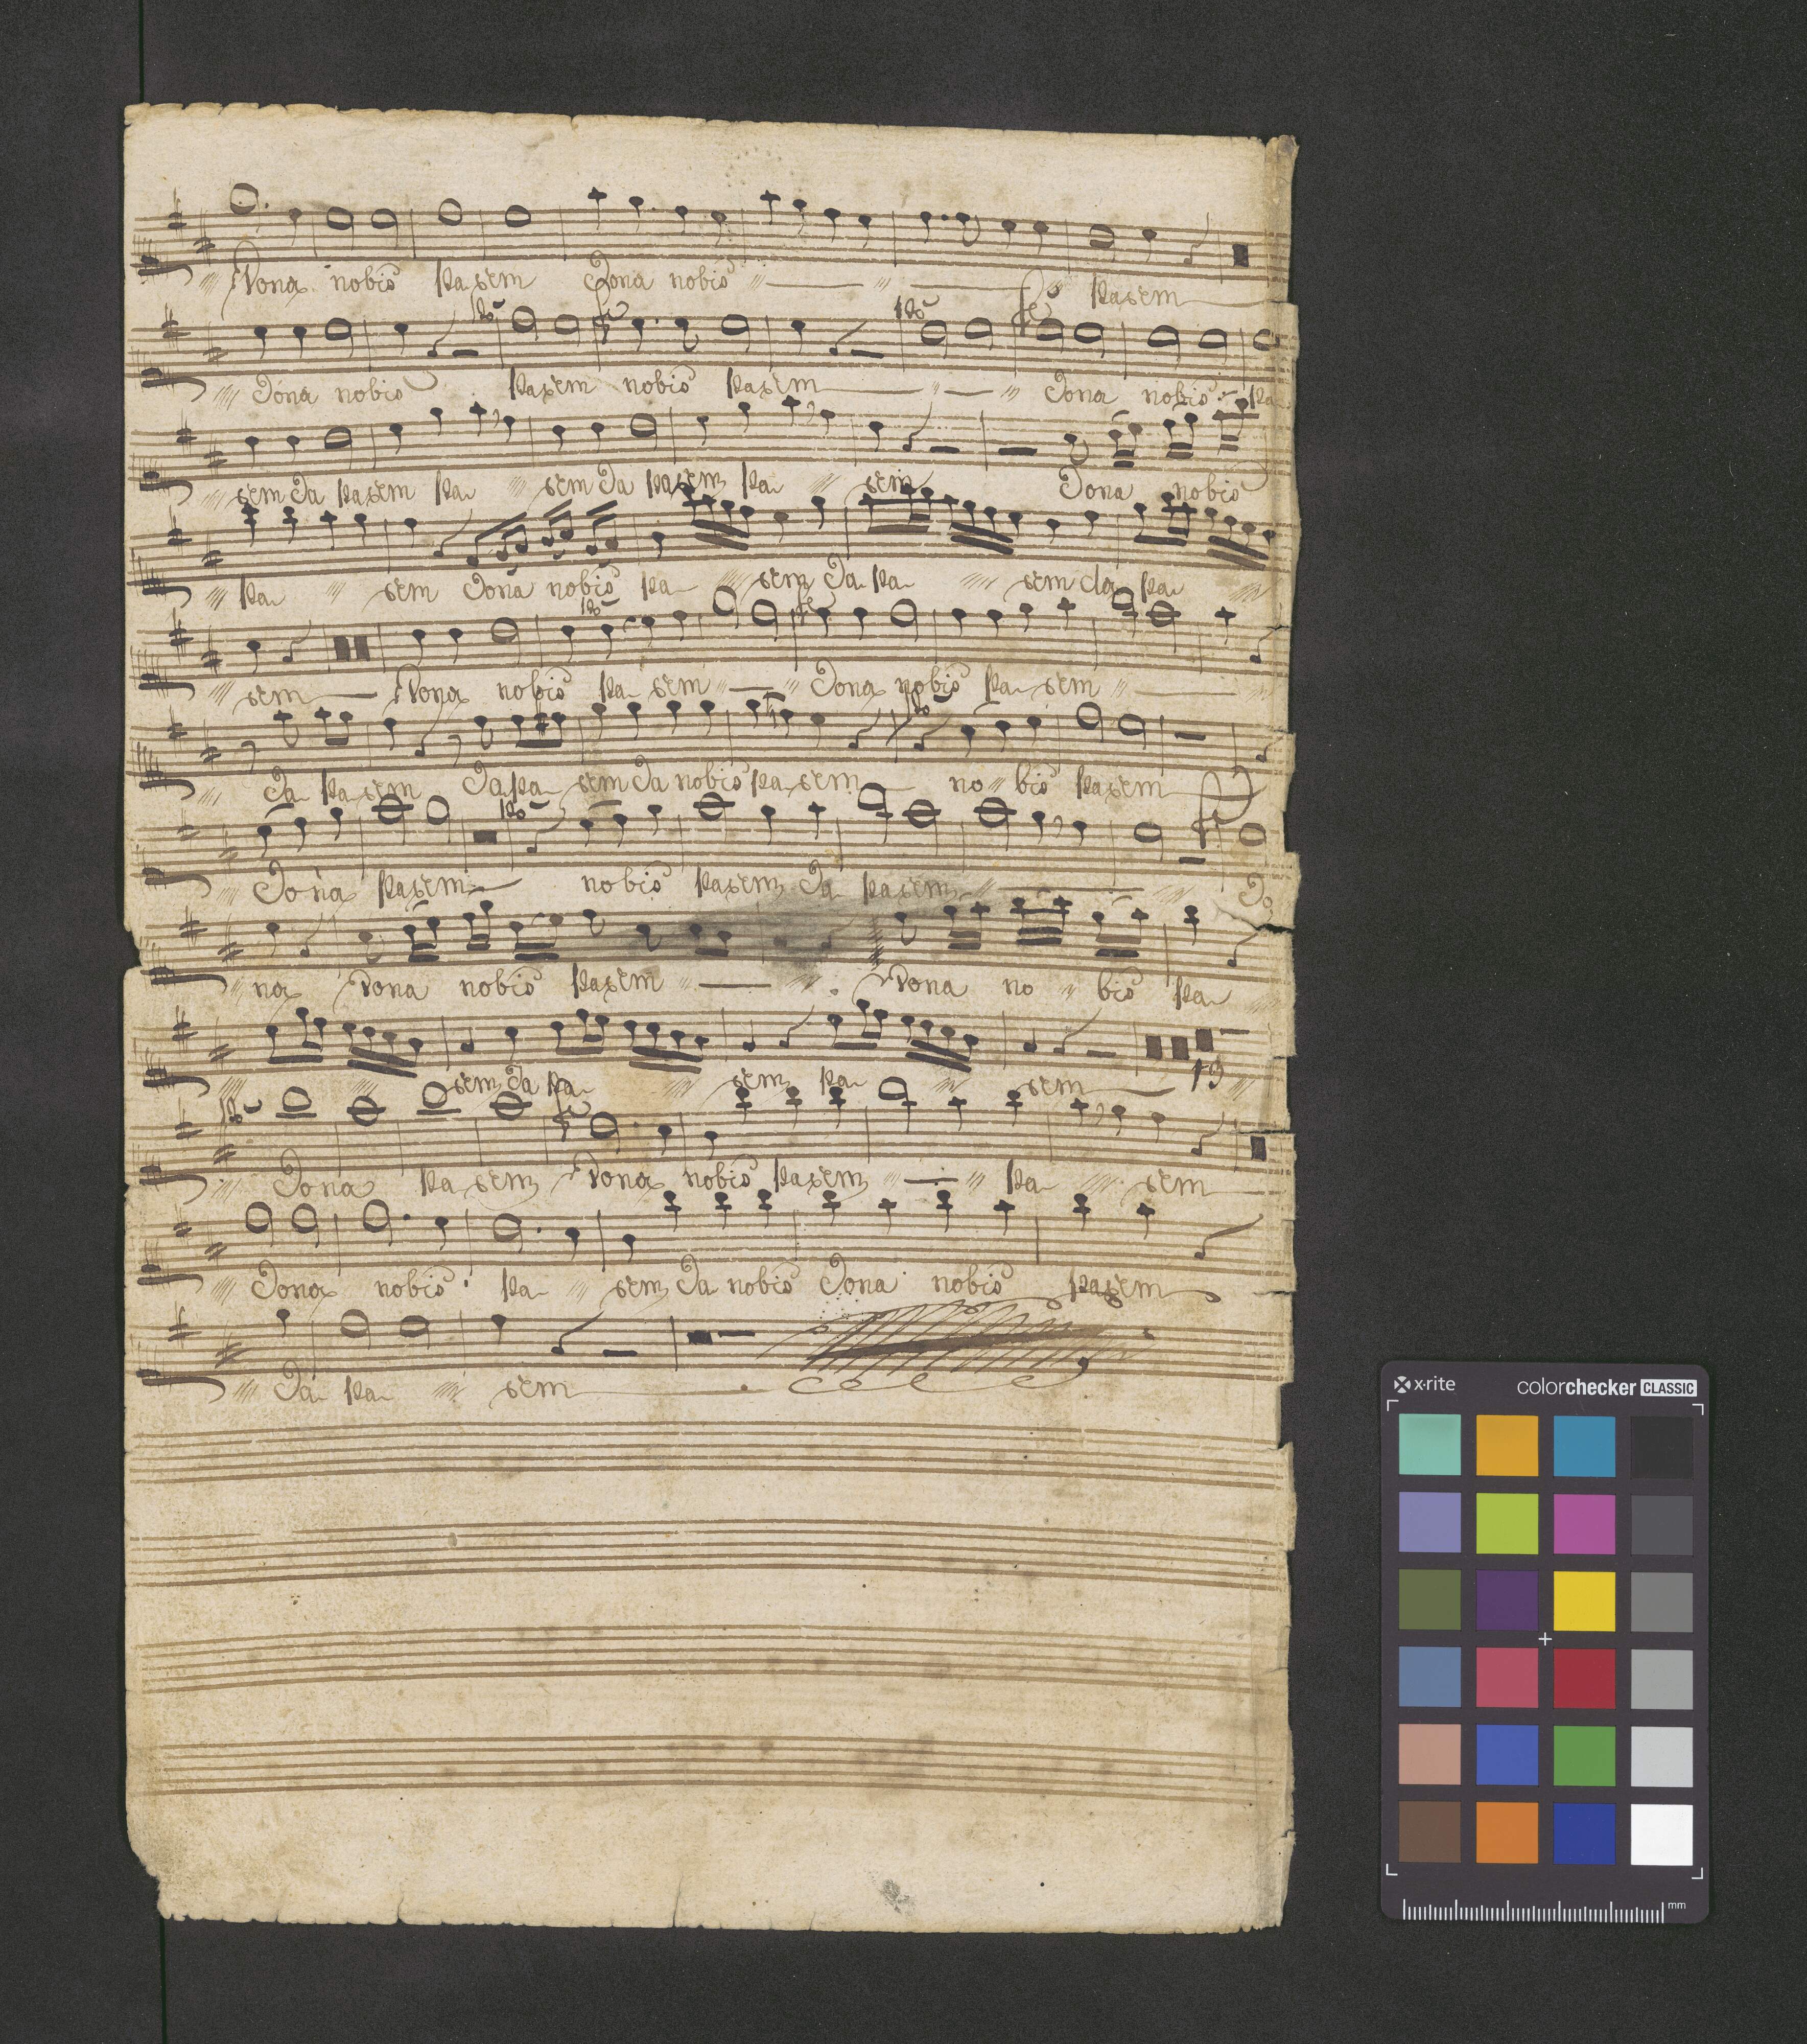 Dona nobis pasem Dona nobis pasem
po fe po fe
Dona nobis pasem nobis pasem Dona nobis pa
sem da pasem pa sem da pasem pa sem Dona nobis
pa sem Dona nobis pa sem da pa sem da pa
po fe
sem Dona nobis pa sem Dona nobis pa sem
po
da pa sem da pa sem da nobis pa sem no bis pasem
po
Dona pasem nobis pasem da pasem Do
na Dona nobis pasem Dona no bis pa
sem da pa sem pa sem 13
po fe
Dona pa sem Dona nobis pasem pa sem
Dona nobis pa sem da nobis Dona nobis pasem
da pa sem
x·rite colorchecker CLASSIC
mm